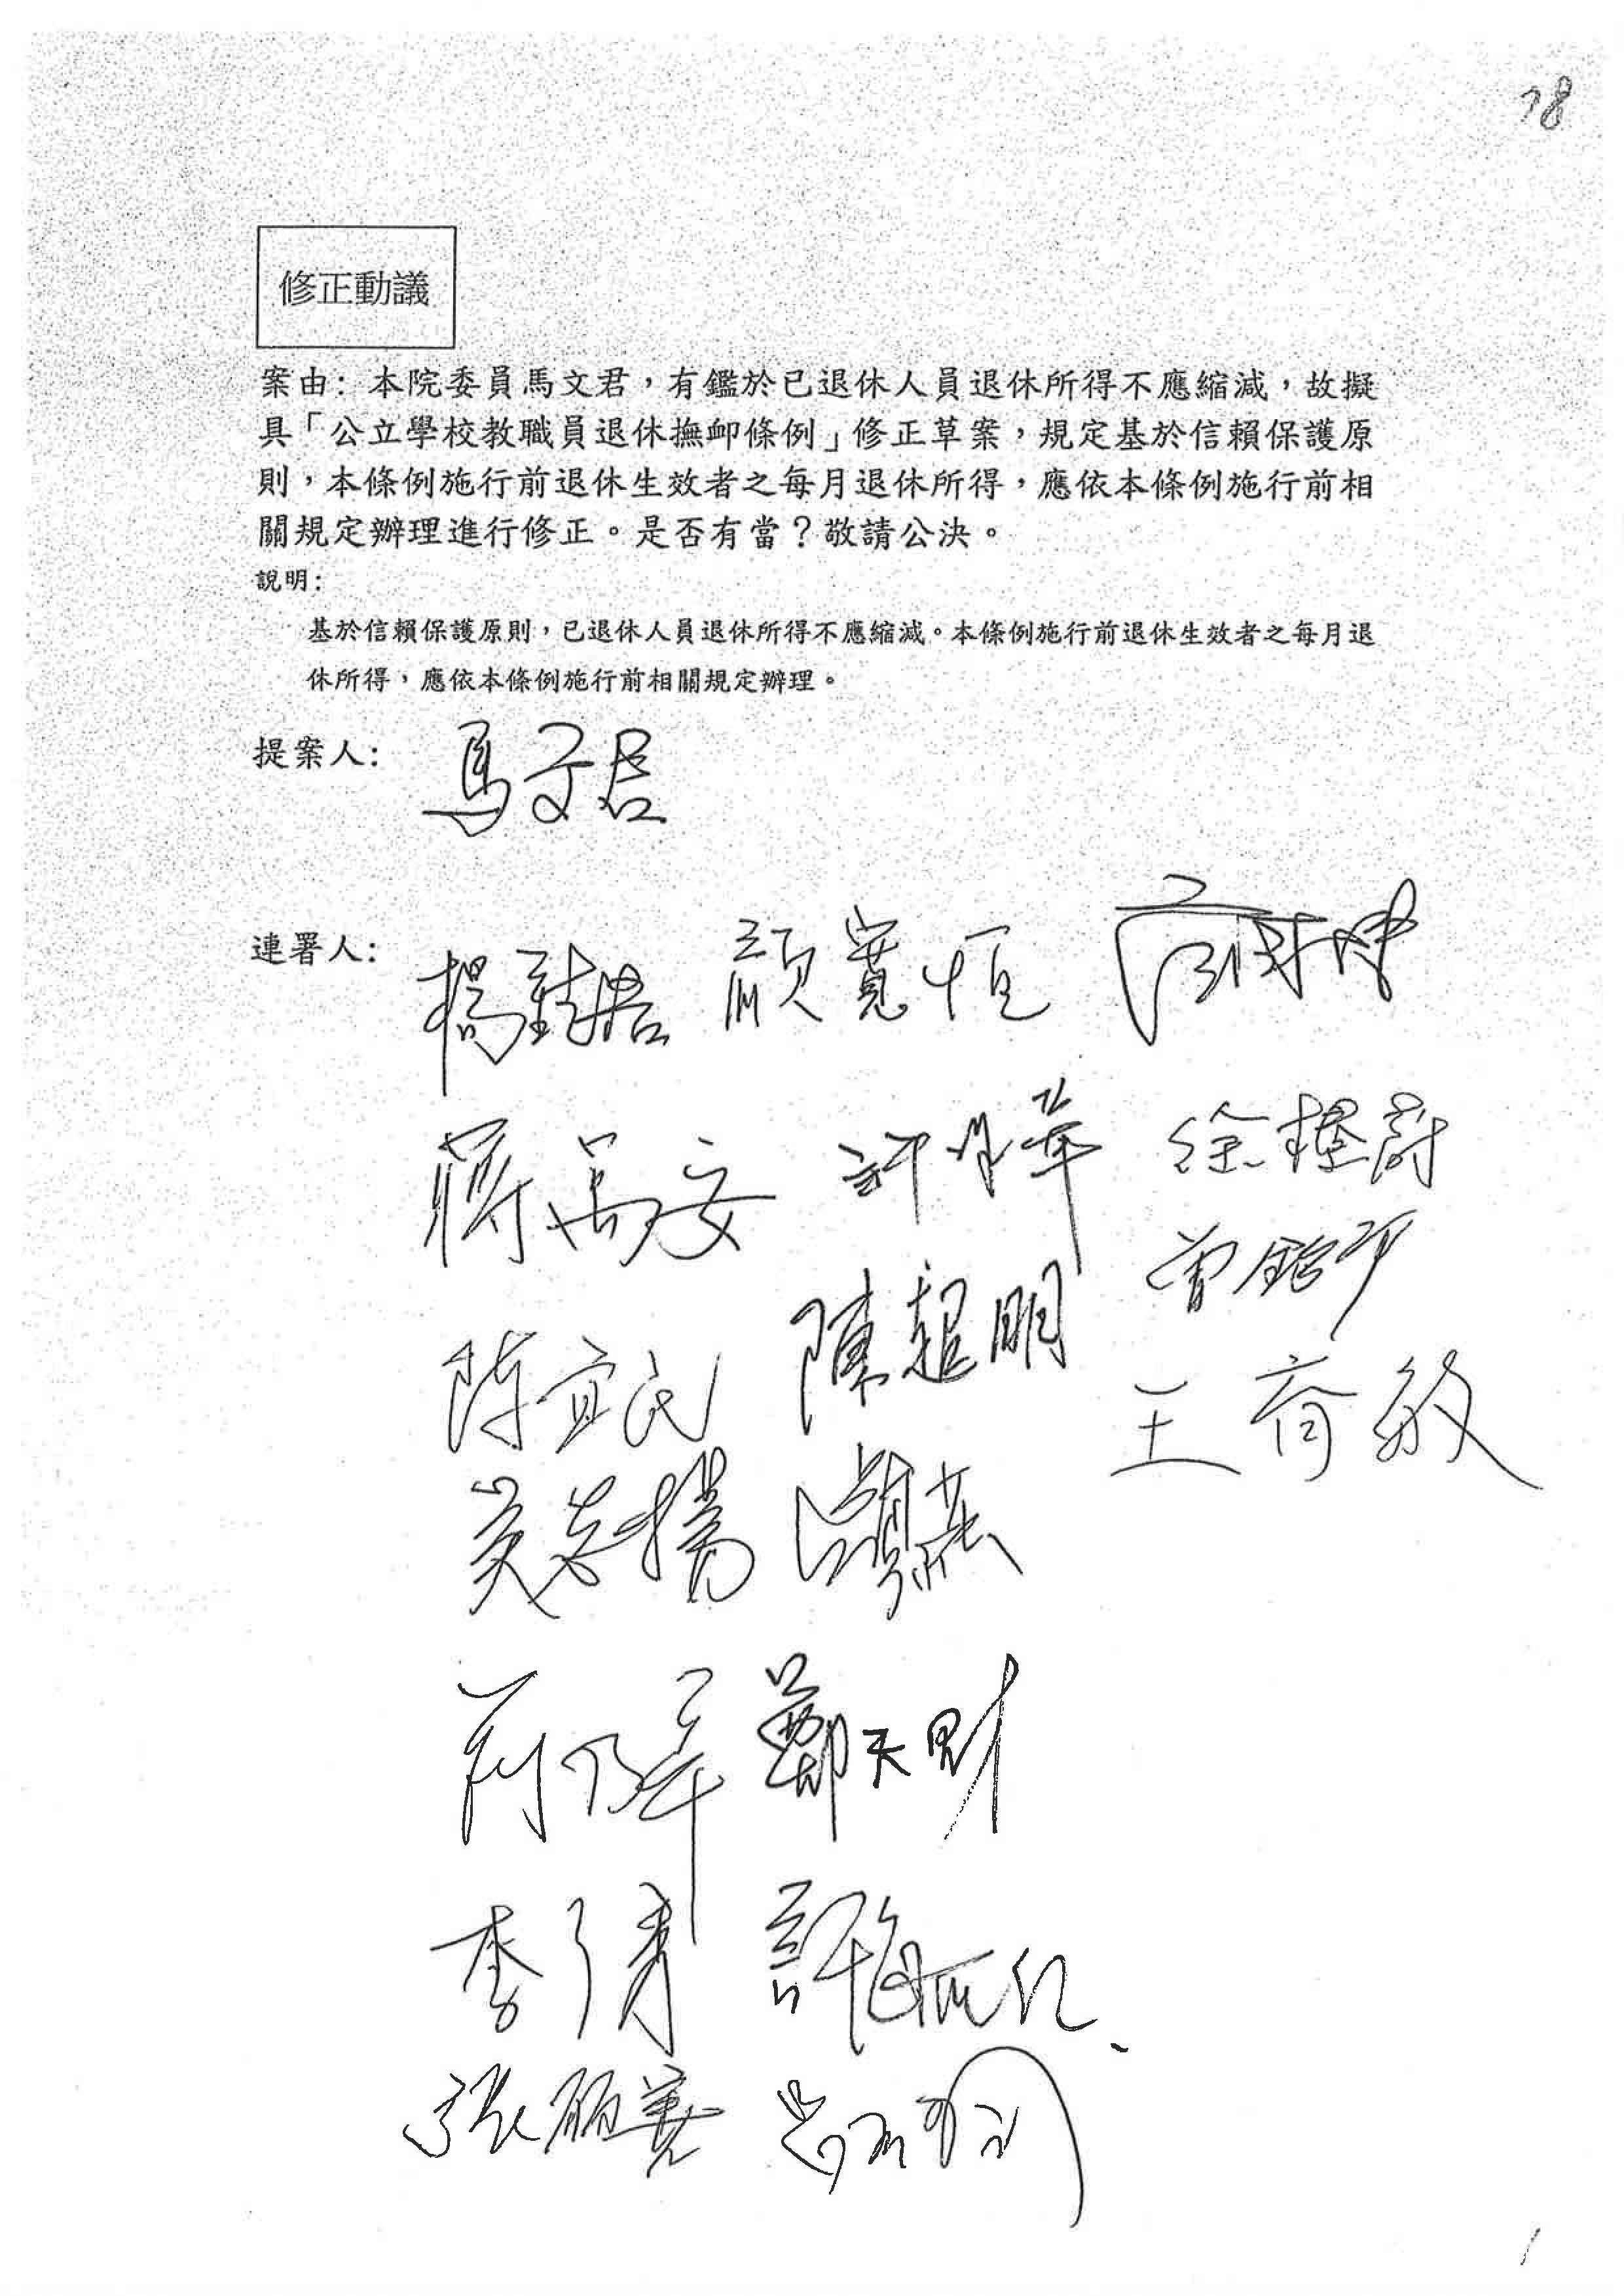 78
修正動議
案由：本院委員馬文君，有鑑於已退休人員退休所得不應縮減，故擬
具「公立學校教職員退休撫卹條例」修正草案，規定基於信賴保護原
則，本條例施行前退休生效者之每月退休所得，應依本條例施行前相
關規定辦理進行修正。是否有當？敬請公決。
說明：
基於信賴保護原則，已退休人員退休所得不應縮減。本條例施行前退休生效者之每月退
休所得，應依本條例施行前相關規定辦理。
提案人： 馬文君
連署人： 楊鎮浯 顏寬恒
蔣萬安 許淑華 徐榛蔚
曾銘宗
陳宜民 陳超明
王育敏
黃昭順
鄭天財
李彥秀 許毓仁
張麗善
1